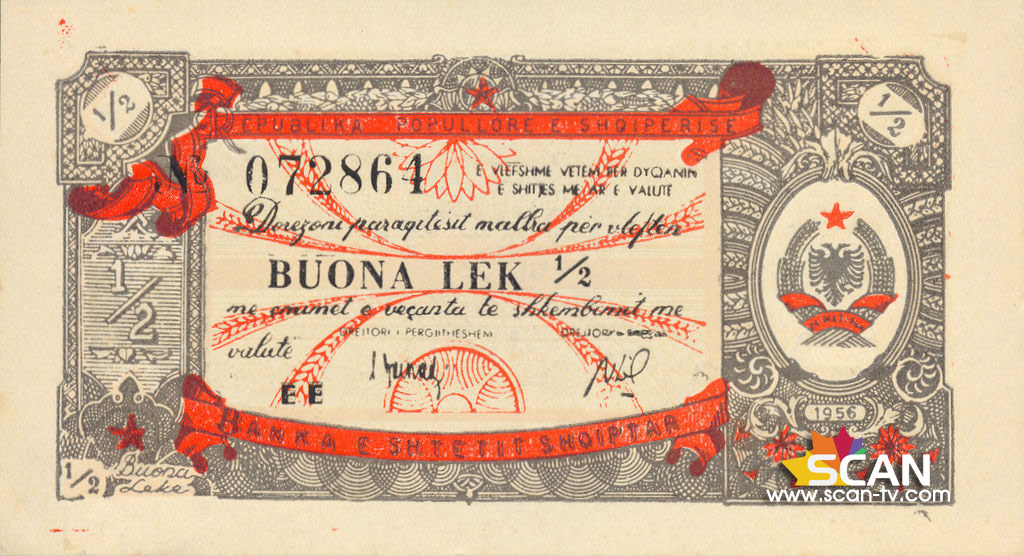 1/2
1/2
REPUBLIKA POPULLORE E SHQIPERISE
Nº 072864
E VLEFSHME VETEM PER DYQANIN
E SHITJES ME AR E VALUTE
Dorezoni paraqitesit mallra për vleften
BUONA LEK 1/2
1/2
me çmimet e veçanta te shkembimit me
valutë
DREJTORI I PERGJITHESHEM
EE
BANKA E SHTETIT SHQIPTAR
1956
1/2
Buona
Leke
SCAN
www.scan-tv.com